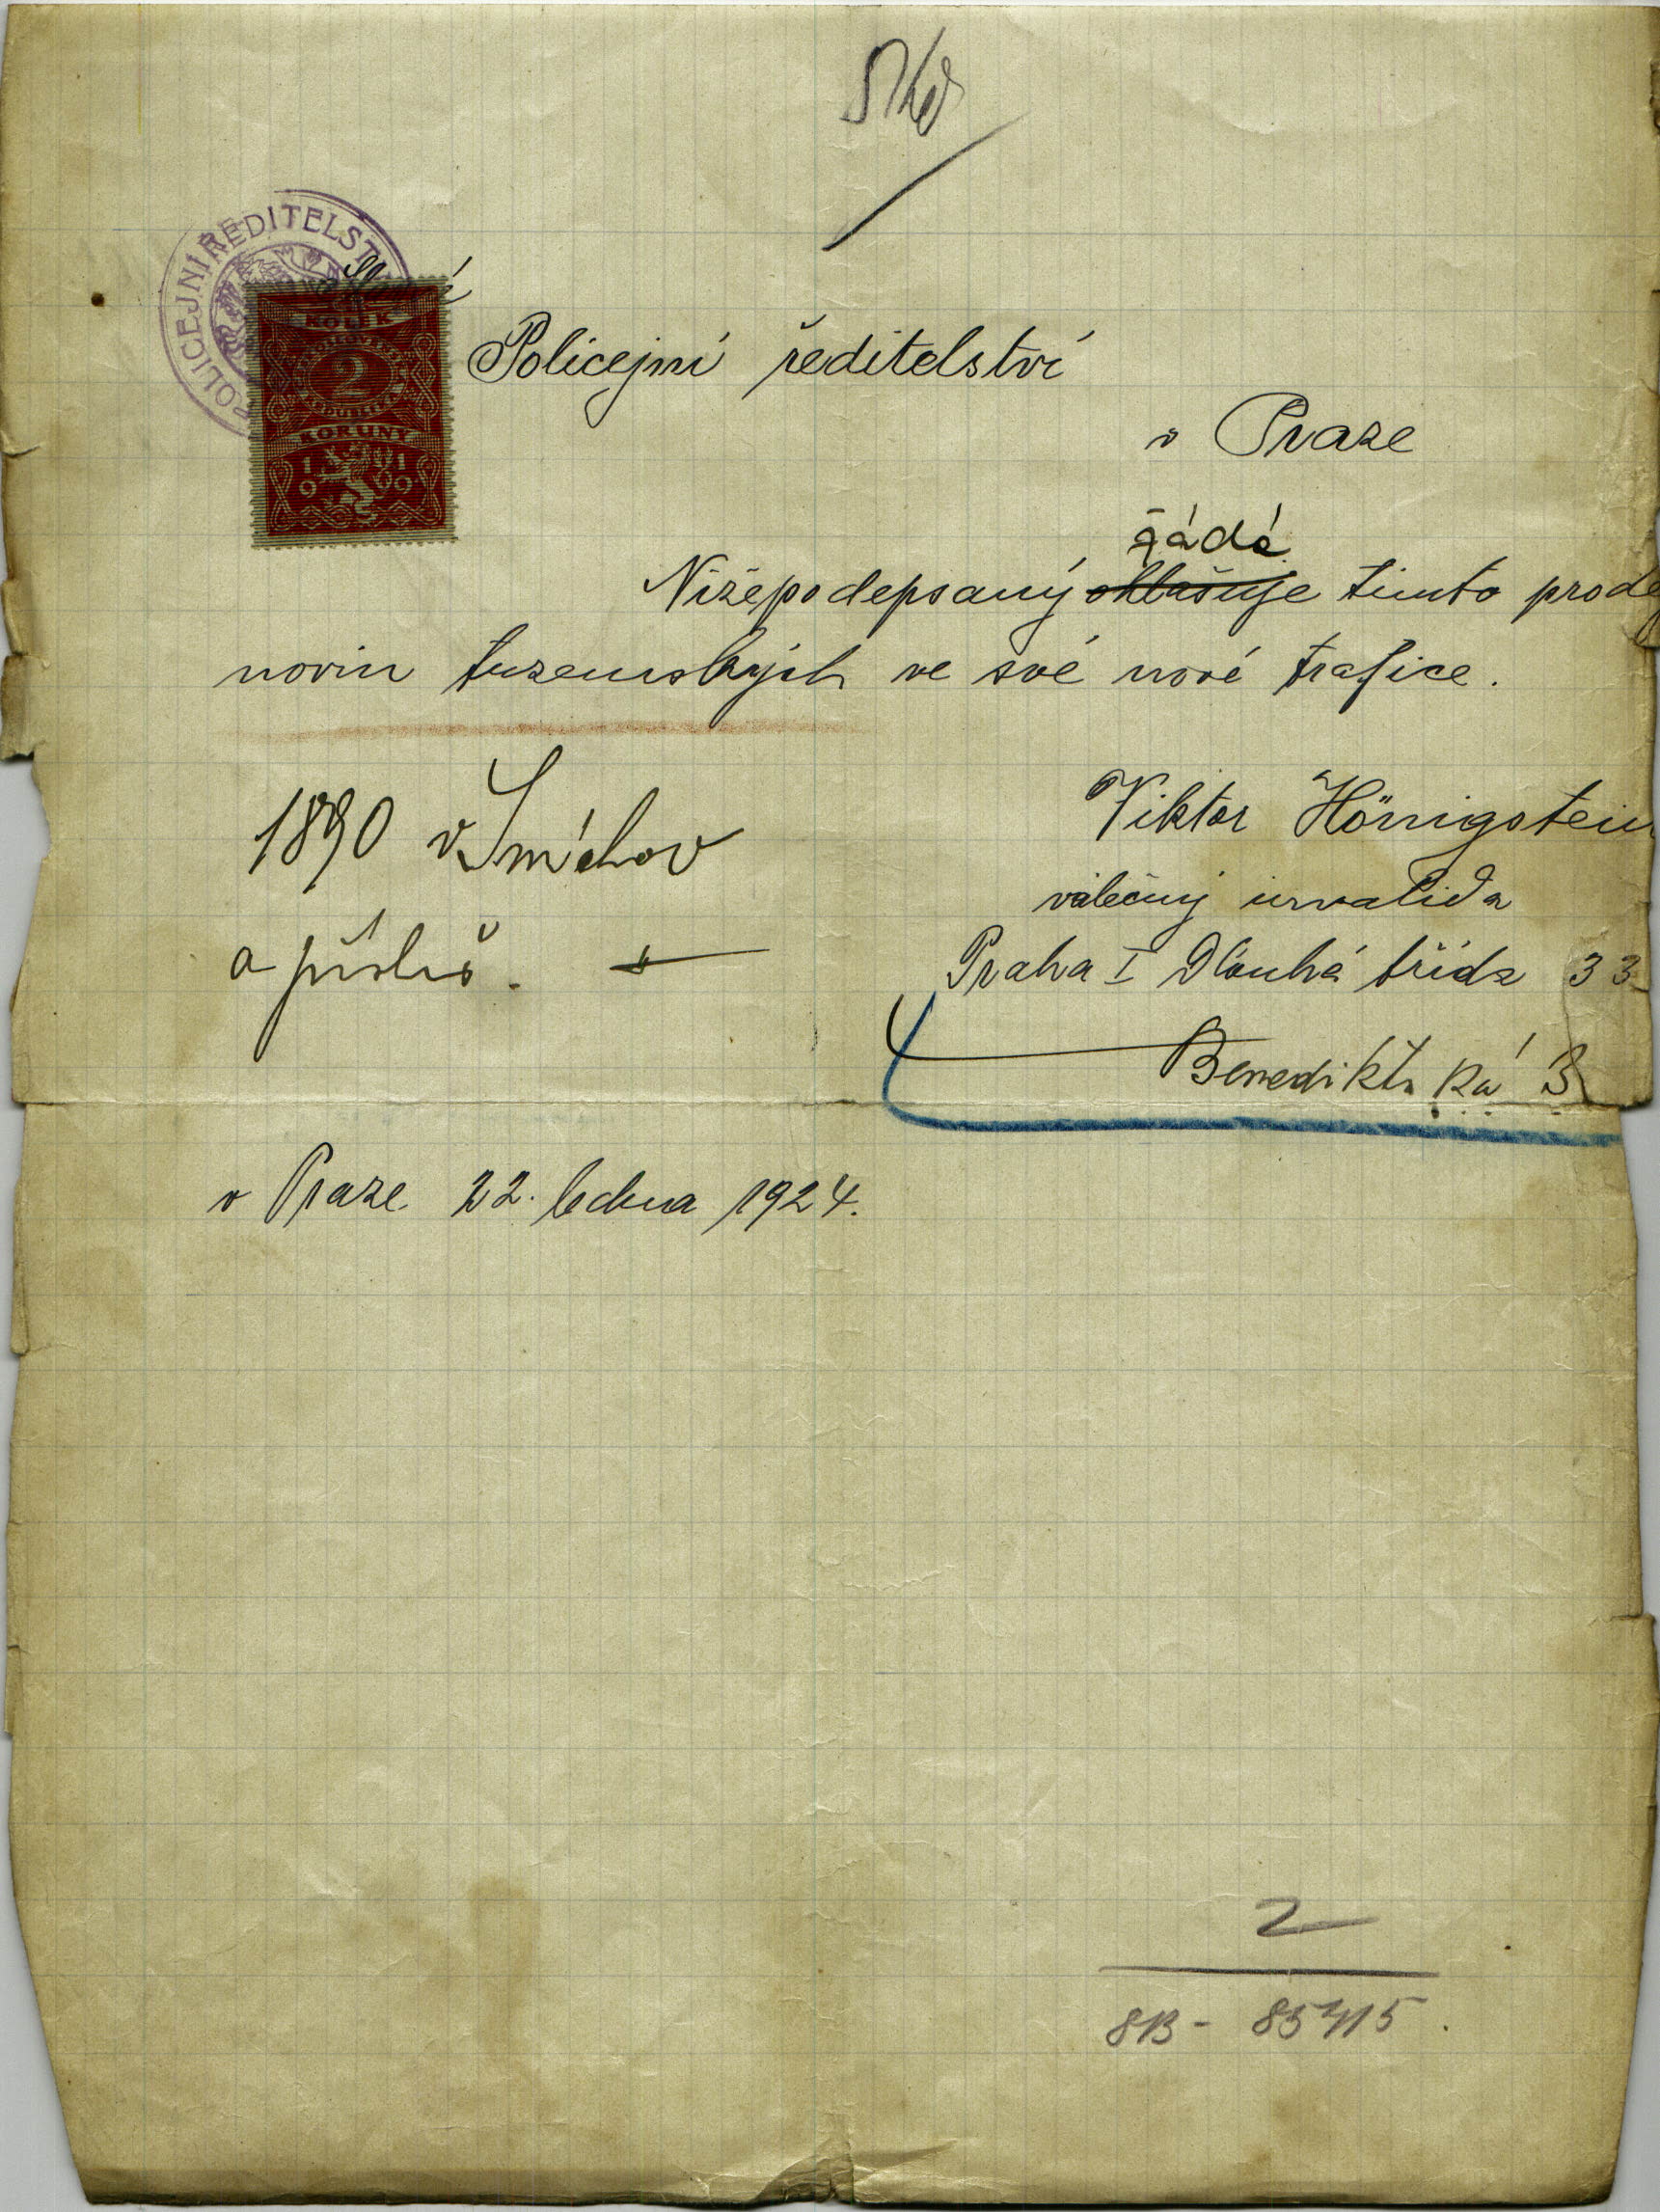 POLICEJNÍ ŘEDITELST
KOLEK
2
KORUNY
1919
Policejní ředitelství
v Praze
žádá
Nížepodepsaný ohlašuje tímto prodej
novin tuzemských ve své nové trafice.
1890 v Smíchov
a přísluš.
Viktor Hönigstein
válečný invalida
Praha I Dlouhá třída 33
Benediktská 3
v Praze 22. ledna 1924.
2
8B - 85415